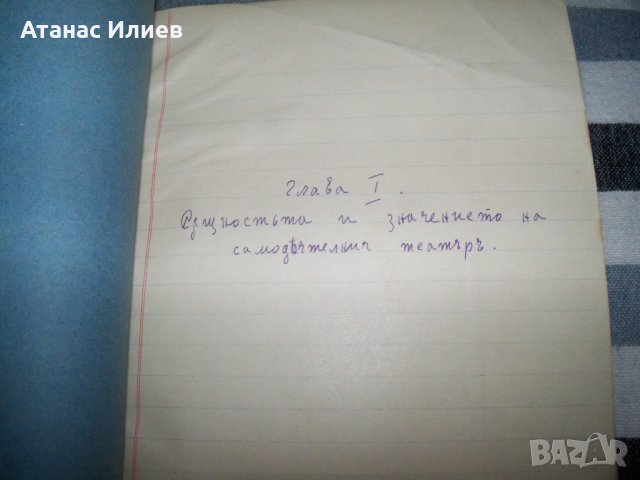 Атанас Илиев
Глава I.
Сѫщностьта и значението на
самодѣтелния театъръ.
BAZAR